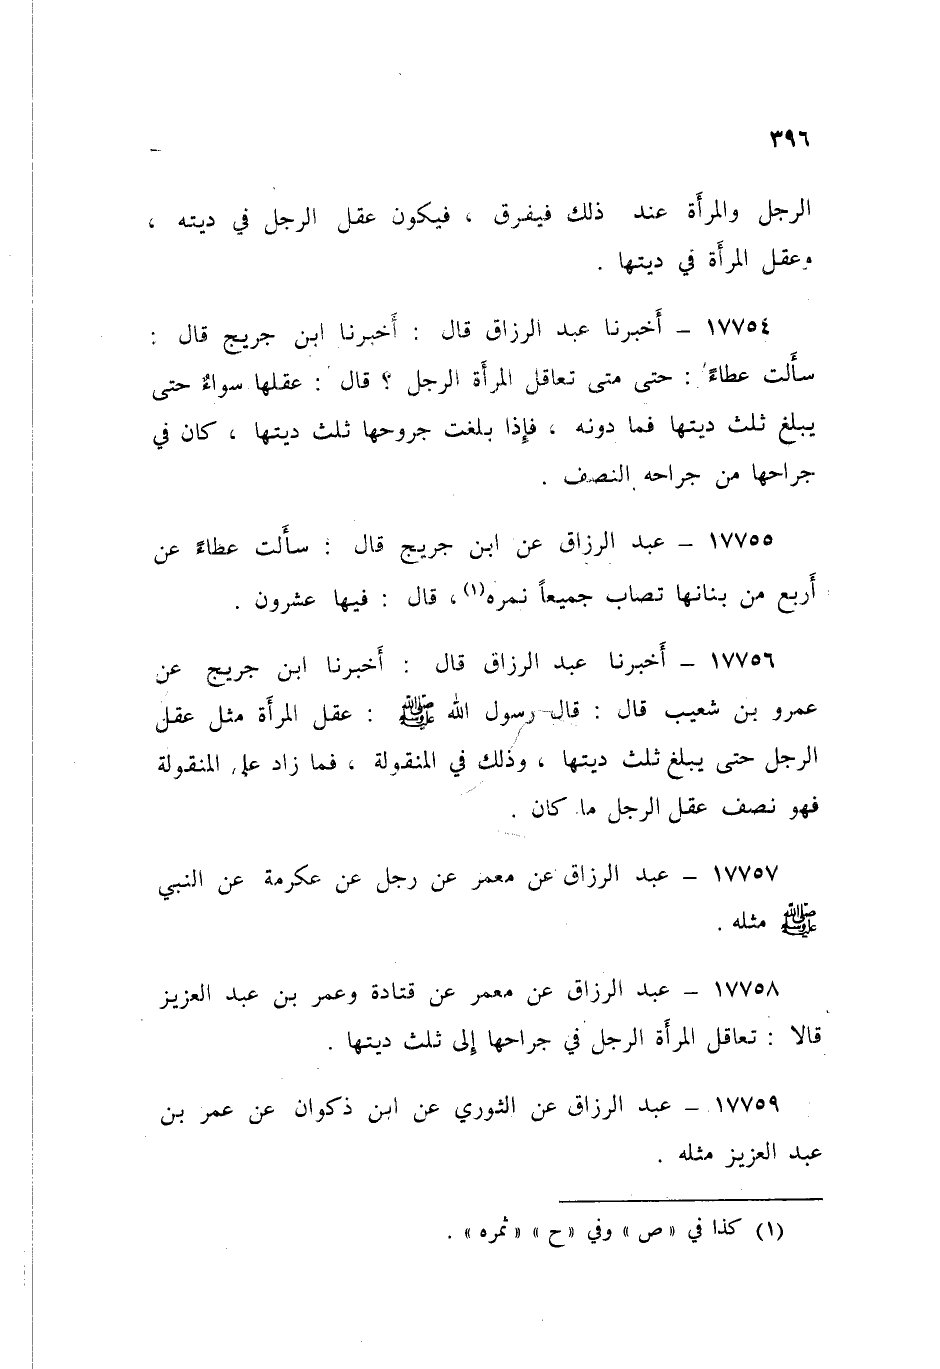 ٣٩٦
الرجل والمرأة عند ذلك فيفرق ، فيكون عقل الرجل في ديته ،
وعقل المرأة في ديتها .
١٧٧٥٤ – أخبرنا عبد الرزاق قال : أخبرنا ابن جريج قال :
سألت عطاءً : حتى متى تعاقل المرأة الرجل ؟ قال : عقلها سواءٌ حتى
يبلغ ثلث ديتها فما دونه ، فإذا بلغت جروحها ثلث ديتها ، كان في
جراحها من جراحه النصف .
١٧٧٥٥ – عبد الرزاق عن ابن جريج قال : سألت عطاءً عن
أربع من بنانها تصاب جميعاً نمره(١)، قال : فيها عشرون .
١٧٧٥٦ – أخبرنا عبد الرزاق قال : أخبرنا ابن جريج عن
عمرو بن شعيب قال : قال رسول الله ﷺ : عقل المرأة مثل عقل
الرجل حتى يبلغ ثلث ديتها ، وذلك في المنقولة ، فما زاد على المنقولة
فهو نصف عقل الرجل ما كان .
١٧٧٥٧ – عبد الرزاق عن معمر عن رجل عن عكرمة عن النبي
ﷺ مثله .
١٧٧٥٨ – عبد الرزاق عن معمر عن قتادة وعمر بن عبد العزيز
قالا : تعاقل المرأة الرجل في جراحها إلى ثلث ديتها .
١٧٧٥٩ – عبد الرزاق عن الثوري عن ابن ذكوان عن عمر بن
عبد العزيز مثله .
(١) كذا في «ص» وفي «ح» «ثمره» .